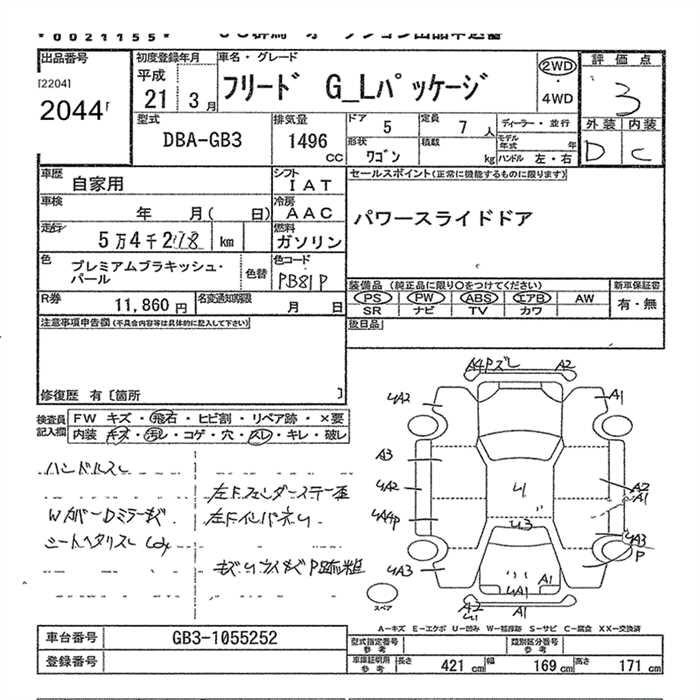 *0021155*
出品番号
[2204]
2044
初度登録年月
平成
21年 3月
車名・グレード
フリード G_Lパッケージ
2WD
4WD
評価点
3
外装 内装
D C
型式
DBA-GB3
排気量
1496
cc
ドア 5
定員 7人
ディーラー・並行
モデル年式 年
形状 ワゴン
積載 kg
ハンドル 左・右
車歴 自家用
シフト IAT
車検 年 月( 日)
冷房 AAC
走行 5万4千2 km
燃料 ガソリン
色 プレミアムブラキッシュ・パール
色替
色コード PB81P
R券 11,860円
名変通知期限 月 日
セールスポイント(正常に機能するものに限ります)
パワースライドドア
装備品(純正品に限り〇をつけてください)
PS PW ABS エアB AW
SR ナビ TV カワ
新車保証書
有・無
後日品
注意事項申告欄(不具合内容等は具体的に記入して下さい)
修復歴 有〔箇所 〕
検査員記入欄
FW キズ・飛石・ヒビ割・リペア跡・×要
内装 キズ・汚レ・コゲ・穴・スレ・キレ・破レ
ハンドルスレ
A4Pズレ A2
4A2 A1
A3
4A2 A2
A1
4A4P
U1
U3
4A3 A3
P
A1
4A1
A2 A1
スペア
A-キズ E-エクボ U-凹み W-補修跡 S-サビ C-腐食 XX-交換済
車台番号 GB3-1055252
登録番号
型式指定番号 参考
類別区分番号 参考
車庫証明用 参考
長さ 421cm 幅 169cm 高さ 171cm